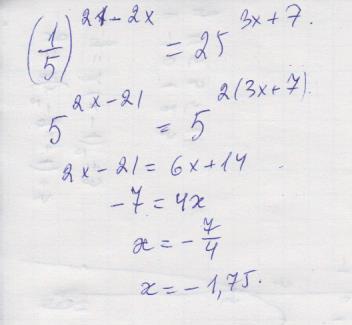 (1/5)^(21-2x) = 25^(3x+7).
5^(2x-21) = 5^(2(3x+7)).
2x-21 = 6x+14
-7 = 4x
x = -7/4
x = -1,75.